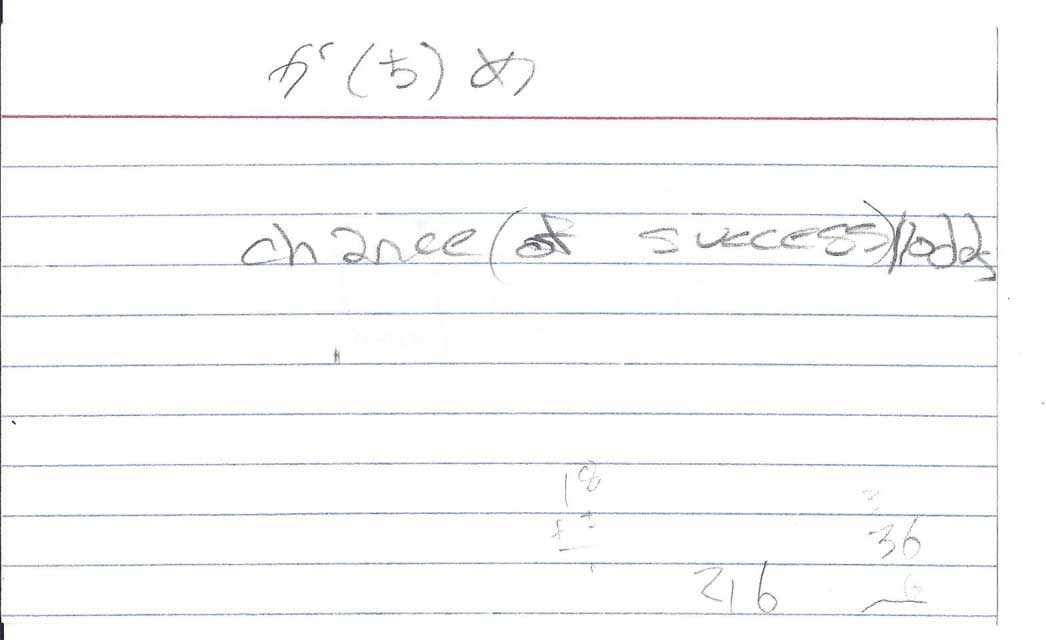 か(ち)め
chance (of success)//odds
18
36
216 6